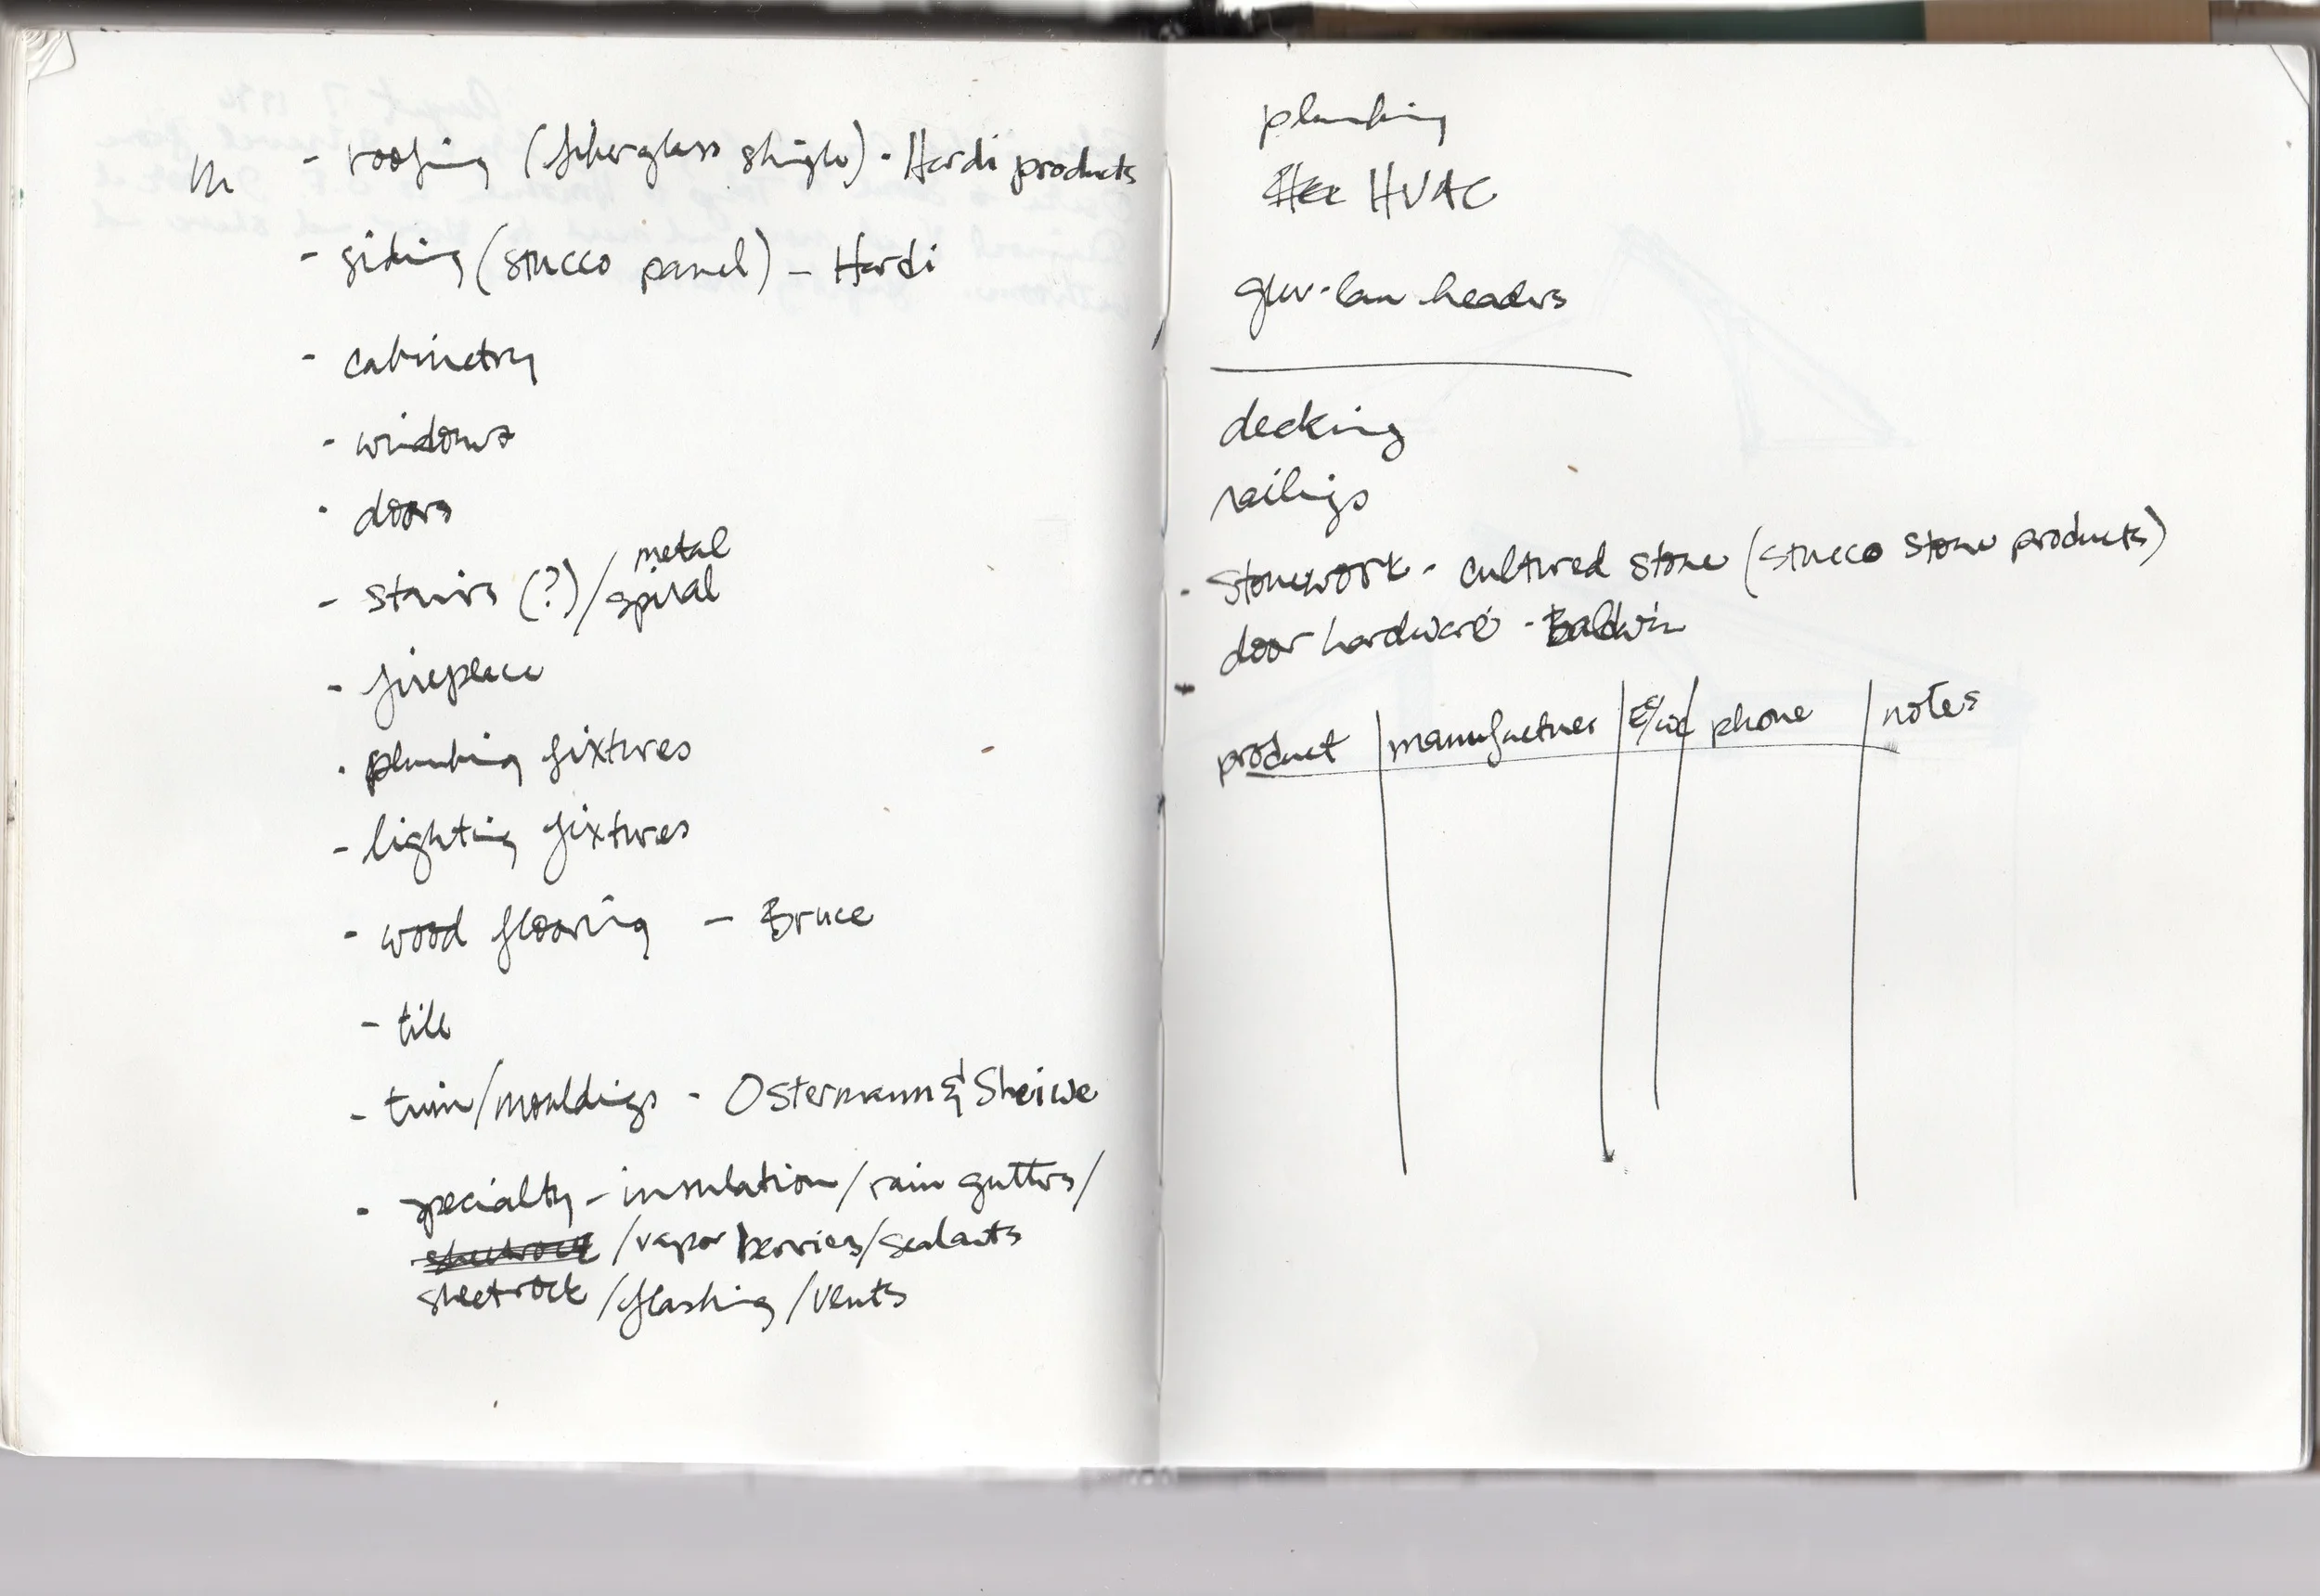 - roofing (fiberglass shingle) - Hardi products
- siding (stucco panel) - Hardi
- cabinetry
- windows
- doors
- stairs (?) / metal spiral
- fireplace
- plumbing fixtures
- lighting fixtures
- wood flooring - Bruce
- tile
- trim/mouldings - Ostermann & Sheiwe
- specialty - insulation / rain gutters /
sheetrock / vapor berries / sealants
sheetrock / flashing / vents
plumbing
HVAC
glu-lam headers
decking
railings
- Stonework - cultured stone (stucco stone products)
door hardware - Baldwin
product | manufacturer | phone | notes